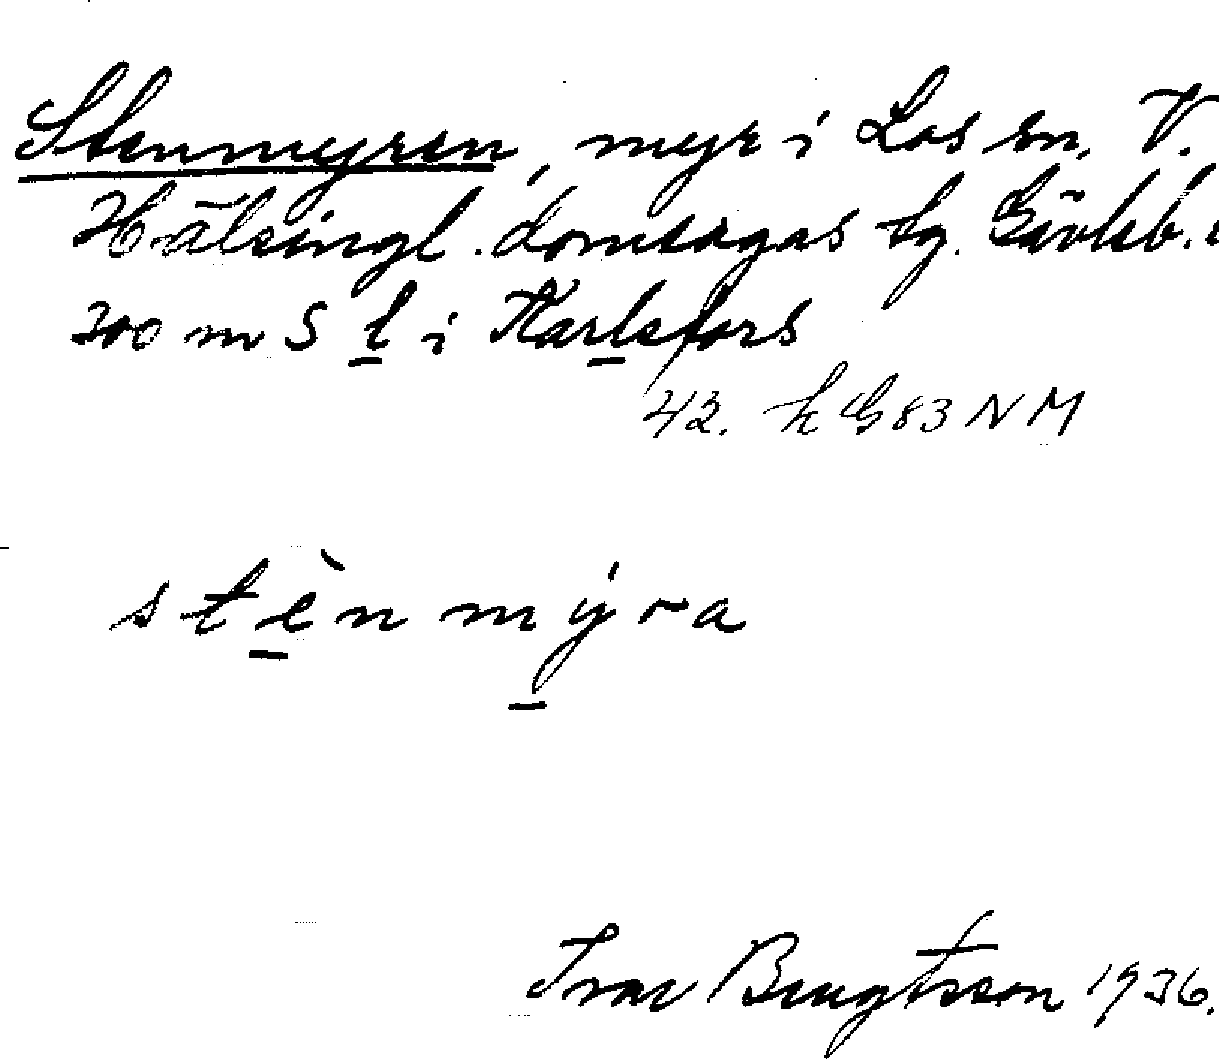 Stenmyren, myr i Los sn. V.
Hälsingl. domsagas tg. Gävleb. l
700 m S l i Karlsfors
42. k G 83 N M
stènmýra
Ivar Bengtsson 1936.